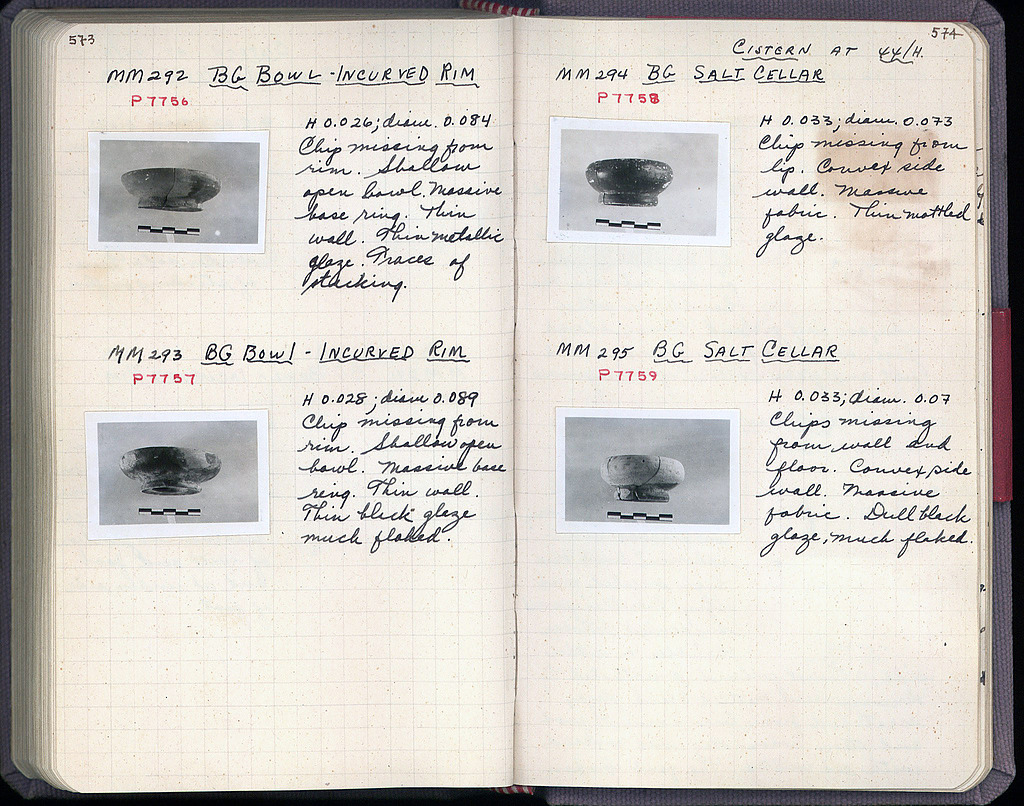 573
MM 292 BG BOWL - INCURVED RIM
P 7756
H 0.026; diam. 0.084
Chip missing from
rim. Shallow
open bowl. Massive
base ring. Thin
wall. Thin metallic
glaze. Traces of
stacking.
MM 293 BG BOWl - INCURVED RIM
P 7757
H 0.028; diam 0.089
Chip missing from
rim. Shallow open
bowl. Massive base
ring. Thin wall.
Thin black glaze
much flaked.
574
CISTERN AT 44/H.
MM 294 BG SALT CELLAR
P 7758
H 0.033; diam. 0.073
Chip missing from
lip. Convex side
wall. Massive
fabric. Thin mottled
glaze.
MM 295 BG SALT CELLAR
P 7759
H 0.033; diam. 0.07
Chips missing
from wall and
floor. Convex side
wall. Massive
fabric. Dull black
glaze, much flaked.